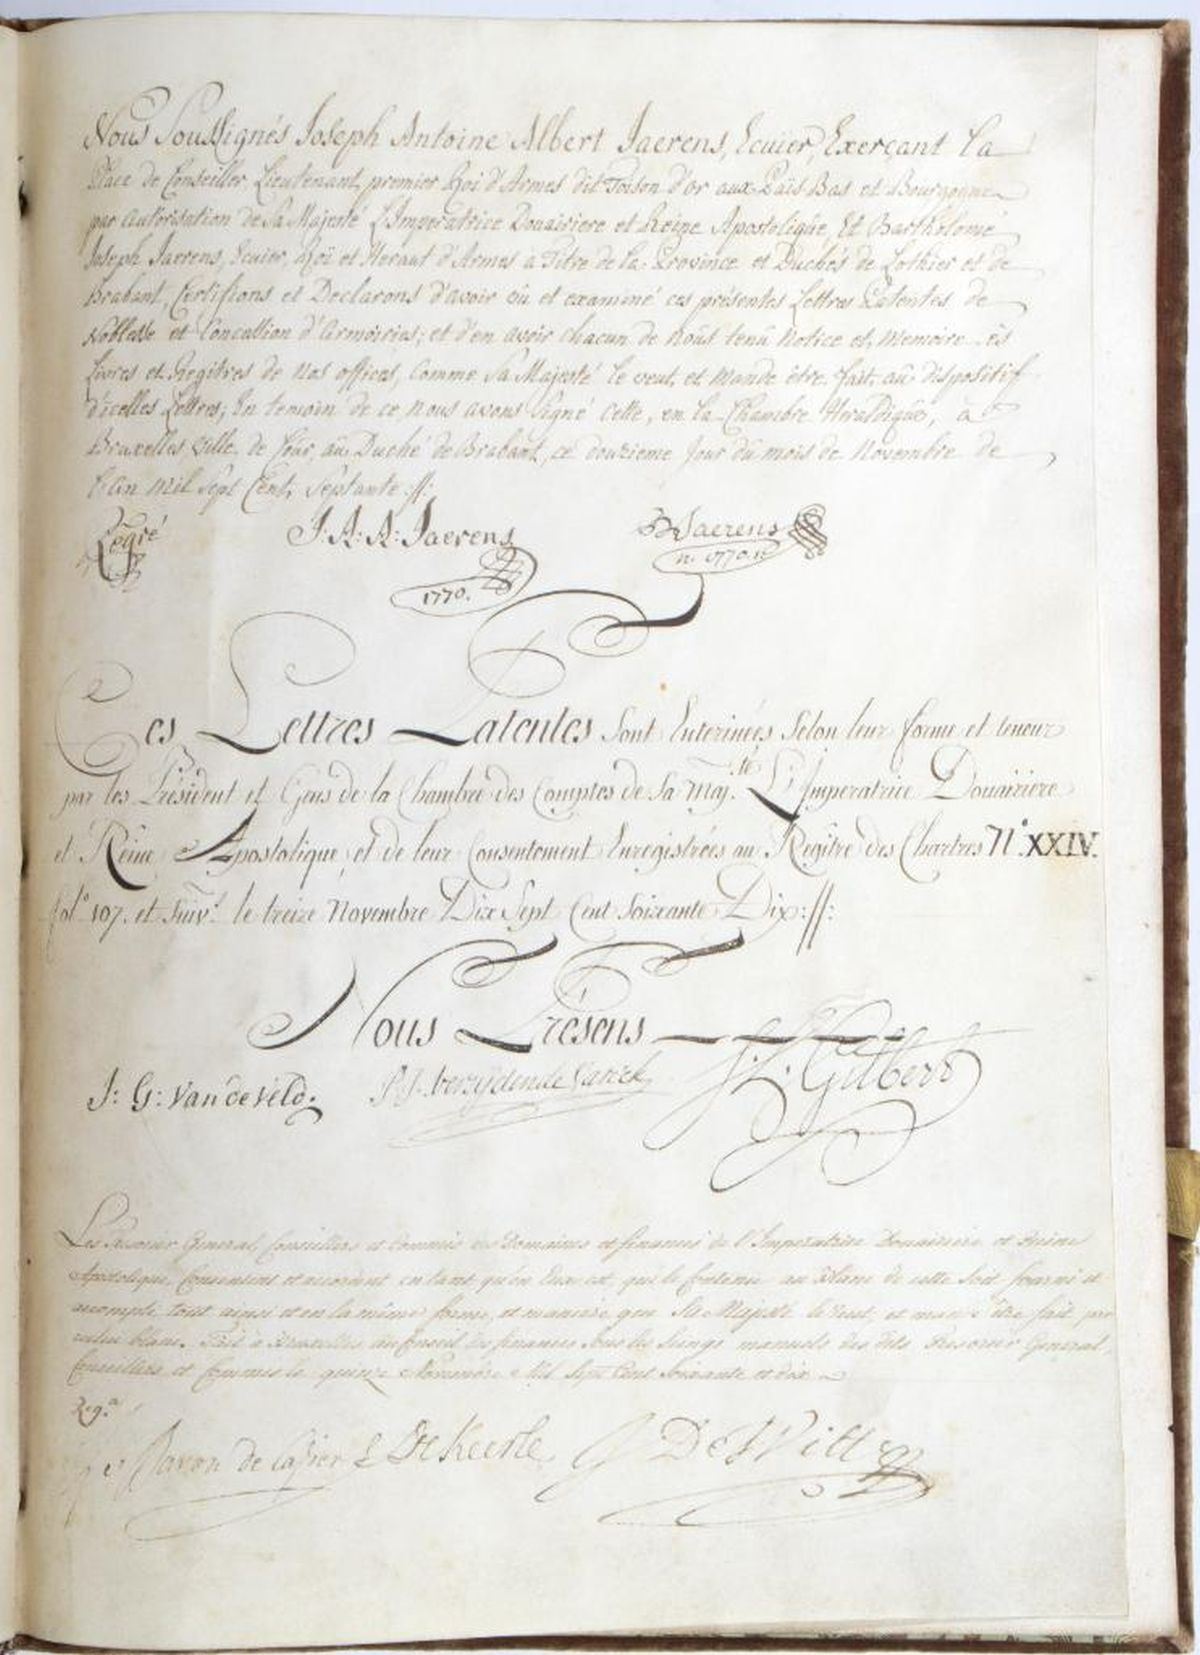 Nous Soussignés Joseph Antoine Albert Jaerens, Ecuier, Exerçant la
Place de Conseiller, Lieutenant, premier Roi d'Armes dit Toison d'or aux Païs Bas et Bourgogne
par autorisation de Sa Majesté L'Imperatrice Douairiere et Reine Apostolique, Et Bartholomé
Joseph Jaerens, Ecuier, Roi et Heraut d'Armes à Titre de la Province et Duchés de Lothier et de
Brabant, Certifions et Declarons d'avoir vû et examiné ces présentes Lettres Patentes de
Noblesse et Concession d'Armoiries; et d'en avoir chacun de nous tenû Notice et Memoire és
Livres et Regitres de nos offices, comme Sa Majesté le veut, et Mande être fait, au dispositif
d'icelles Lettres; En temoin de ce nous avons Signé cette, en la Chambre Heraldique, à
Bruxelles Ville de Cour, au Duché de Brabant, ce douzieme Jour du mois de Novembre de
l'an Mil Sept Cent Septante
J: A: A: Jaerens
1770.
Jaerens
1770
Ces Lettres Patentes Sont Enterinées Selon leur forme et teneur
par les Président et Gens de la Chambre des Comptes de Sa Maj.té L'Imperatrice Douairiere
et Reine Apostolique, et de leur Consentement Enregistrées au Regître des Chartres N.º XXIV.
fol.º 107. et Suiv.t le treize Novembre Dix Sept Cent Soixante Dix
Nous Présens
J: G: Van de Veld.
J. L. Gilbert
Les Tresorier General, Conseillers et Commis des Domaines et finances de l'Imperatrice Douairiere et Reine
Apostolique, Consentent et accordent en tant qu'en Eux est, que le Contenu au Blanc de cette Soit fourni et
accompli, tout ainsi et en la même forme, et maniere que Sa Majesté le veut, et mande être fait par
icelui blanc. Fait à Bruxelles au Conseil des finances Sous les Seings manuels des dits Tresorier General,
Conseillers et Commis le quinze Novembre Mil Sept Cent Soixante et dix
Reg.a
Baron de Cazier De Keerle De Witt